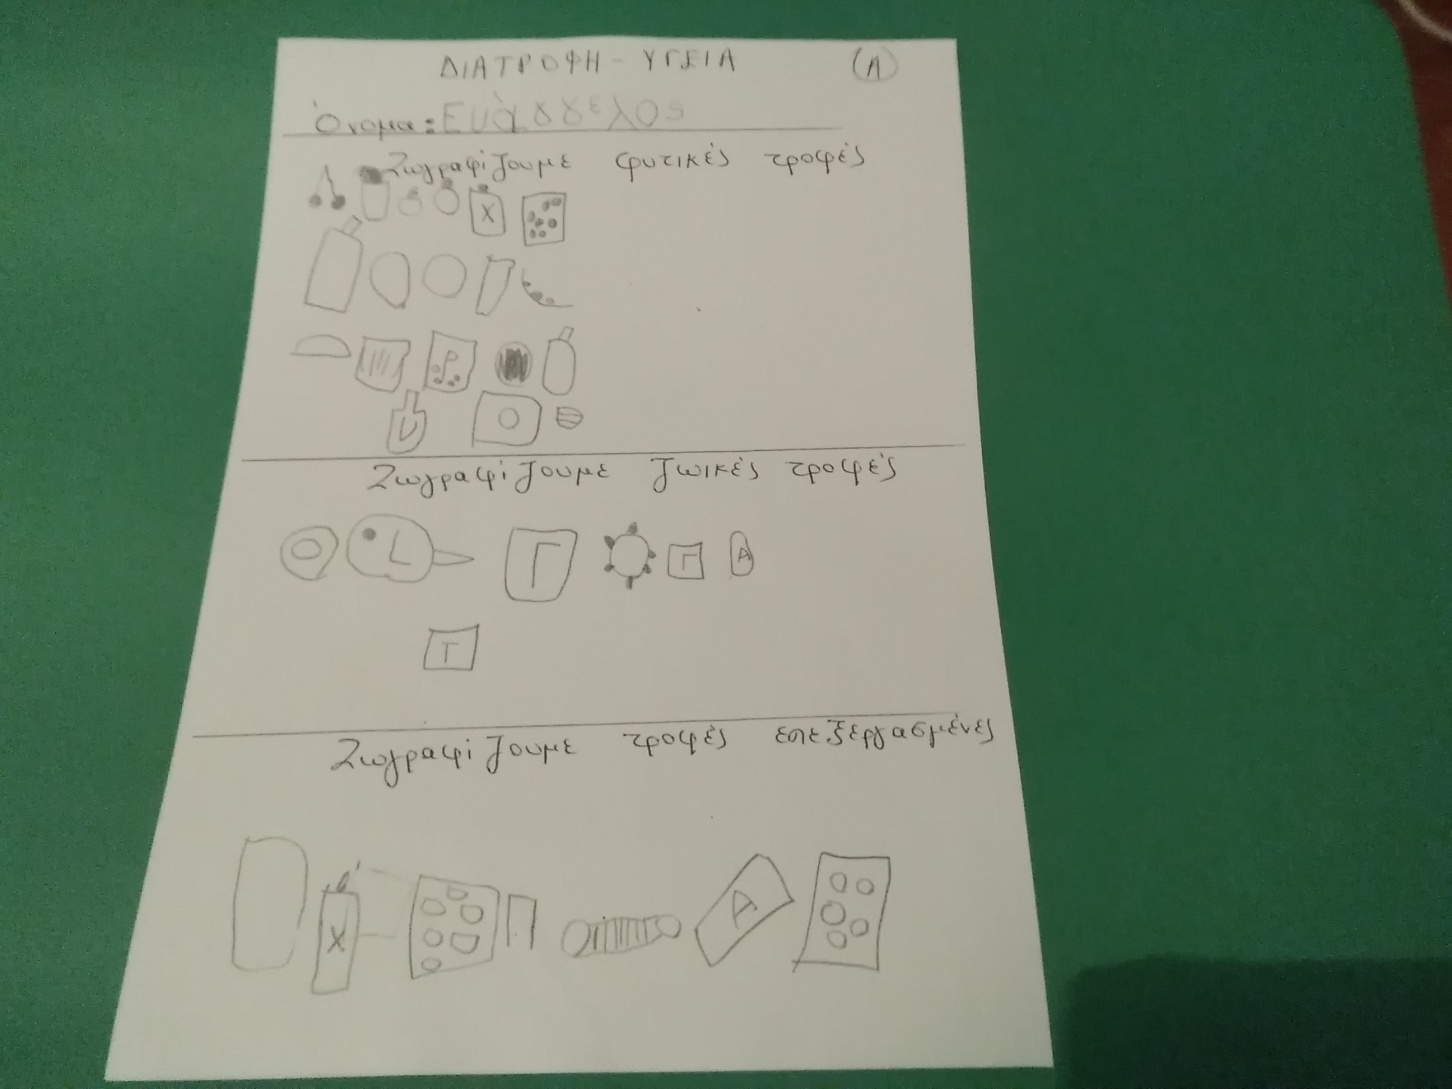 ΔΙΑΤΡΟΦΗ - ΥΓΕΙΑ (Α)
Όνομα: Ευάγγελος
Ζωγραφίζουμε φυτικές τροφές
X
Ζωγραφίζουμε ζωικές τροφές
Γ Γ Α
Τ
Ζωγραφίζουμε τροφές επεξεργασμένες
X Α